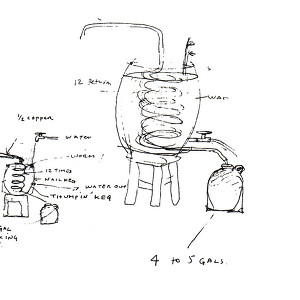 12 Return
Wat
½ copper
Water
Worm
12 Turns
Nail keg
Water out
Thumpin keg
GAL
KING
4 to 5 GALS.